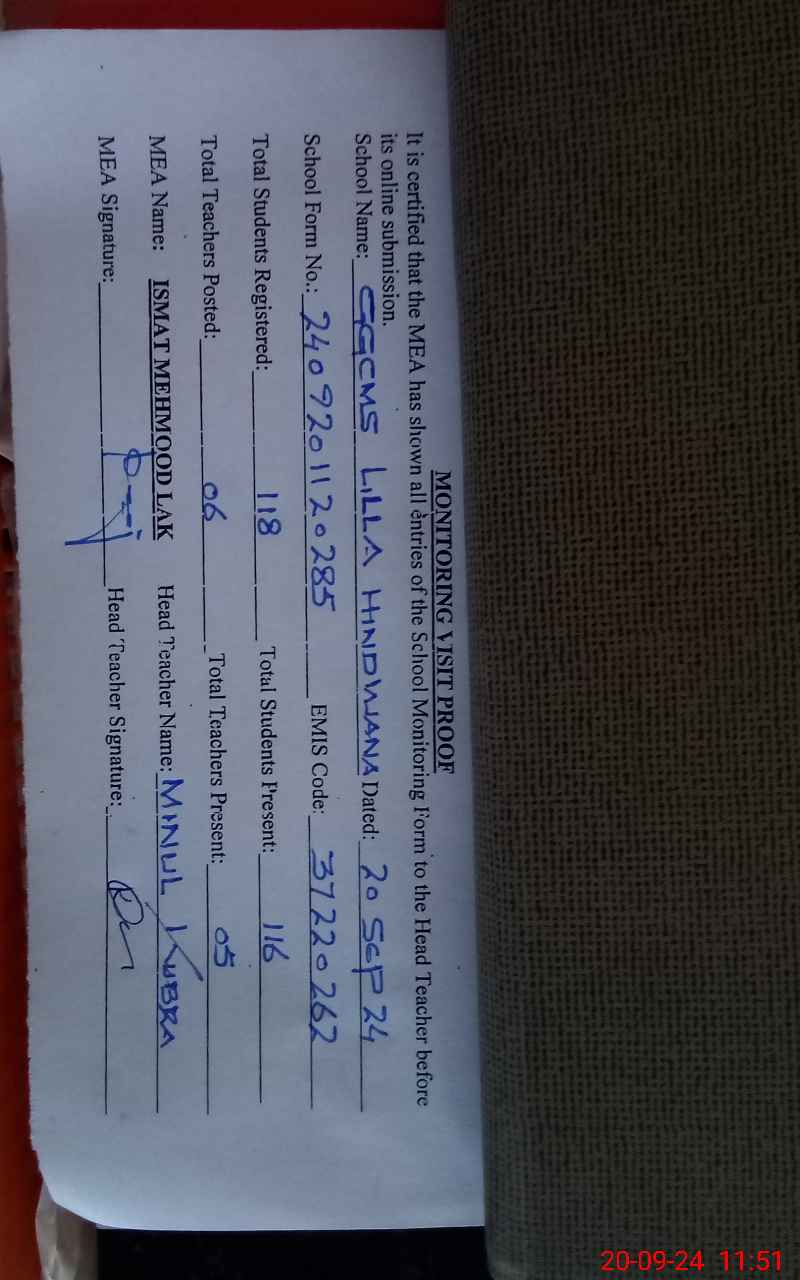 MONITORING VISIT PROOF
It is certified that the MEA has shown all entries of the School Monitoring Form to the Head Teacher before
its online submission.
School Name: GGCMS LILLA HINDWANA Dated: 20 SEP 24
School Form No.: 2409201120285 EMIS Code: 37220262
Total Students Registered: 118 Total Students Present: 116
Total Teachers Posted: 06 Total Teachers Present: 05
MEA Name: ISMAT MEHMOOD LAK Head Teacher Name: MINUL KUBRA
MEA Signature: Head Teacher Signature:
20-09-24 11:51